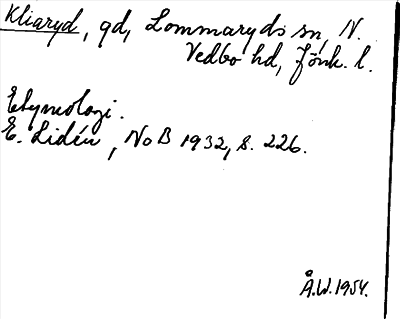 Kliaryd, gd, Lommaryds sn, N.
Vedbo hd, Jönk. l.
Etymologi.
E. Lidén, NoB 1932, s. 226.
Å.W.1954.